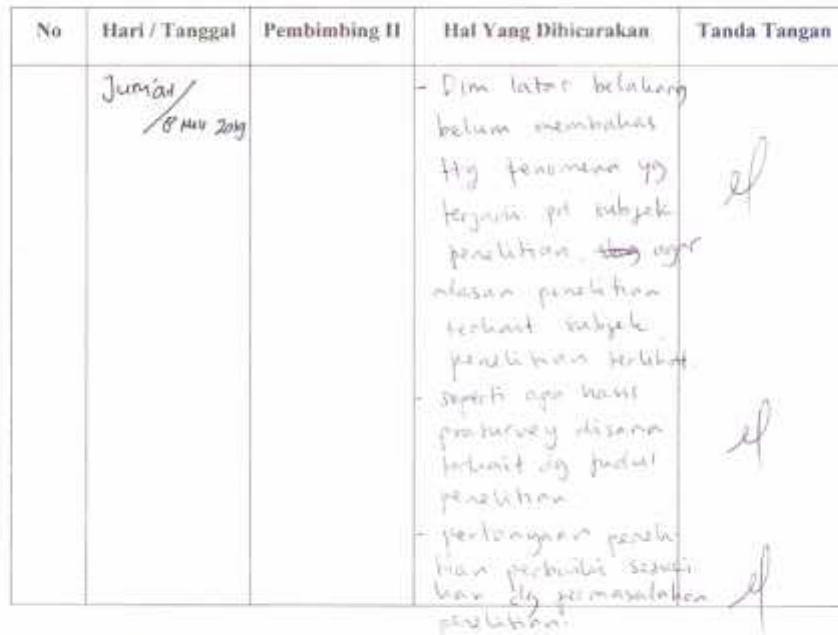 No Hari / Tanggal Pembimbing II Hal Yang Dibicarakan Tanda Tangan
Jum'at/
8 Mei 2019
- Dlm latar belakang
belum membahas
ttg fenomena yg
terjadi pd subjek
penelitian agar
alasan penelitian
terkait subjek
penelitian terlihat.
- seperti apa hasil
prasurvey disana
terkait dg judul
penelitian
- pertanyaan peneli-
tian perbaiki sesuai
kan dg permasalahan
penelitian.